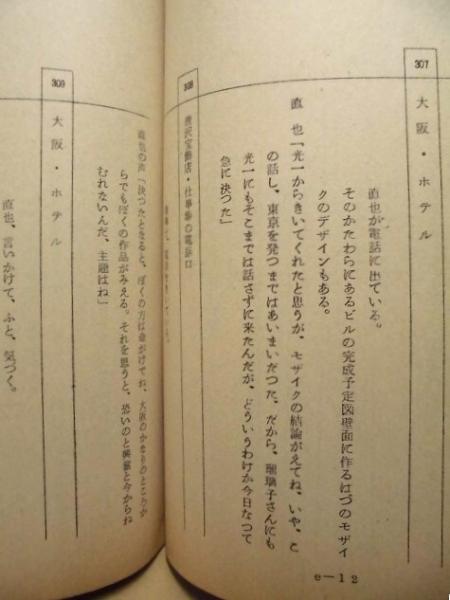 307
大阪・ホテル
直也が電話に出ている。
そのかたわらにあるビルの完成予定図壁面に作るはづのモザイ
クのデザインもある。
直 也「光一からきいてくれたと思うが、モザイクの結論がえてね、いや、こ
の話し、東京を発つまではあいまいだつた、だから、瑠璃子さんにも
光一にもそこまでは話さずに来たんだが、どういうわけか今日なつて
急に決つた」
308
宝飾店・仕事部の電話口
直也の声「決つたとなると、ぼくの方は命がけでね、大阪のかなりのところか
らでもぼくの作品がみえる。それを思うと、恐いのと興奮と今からね
むれないんだ、主題はね」
309
大阪・ホテル
直也、言いかけて、ふと、気づく。
e—12